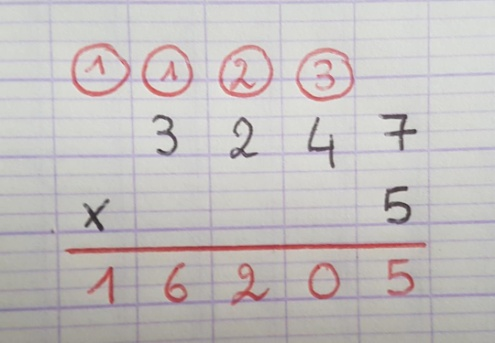 1 1 2 3
3 2 4 7
x 5
1 6 2 0 5